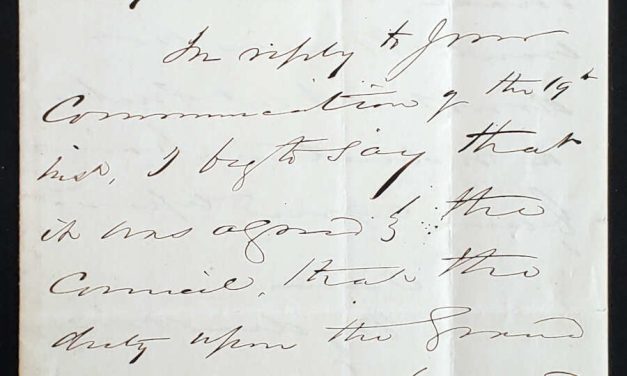 In reply to your
Communication of the 19th
inst, I beg to say that
it was agreed by the
Council, that the
duty upon the Ground